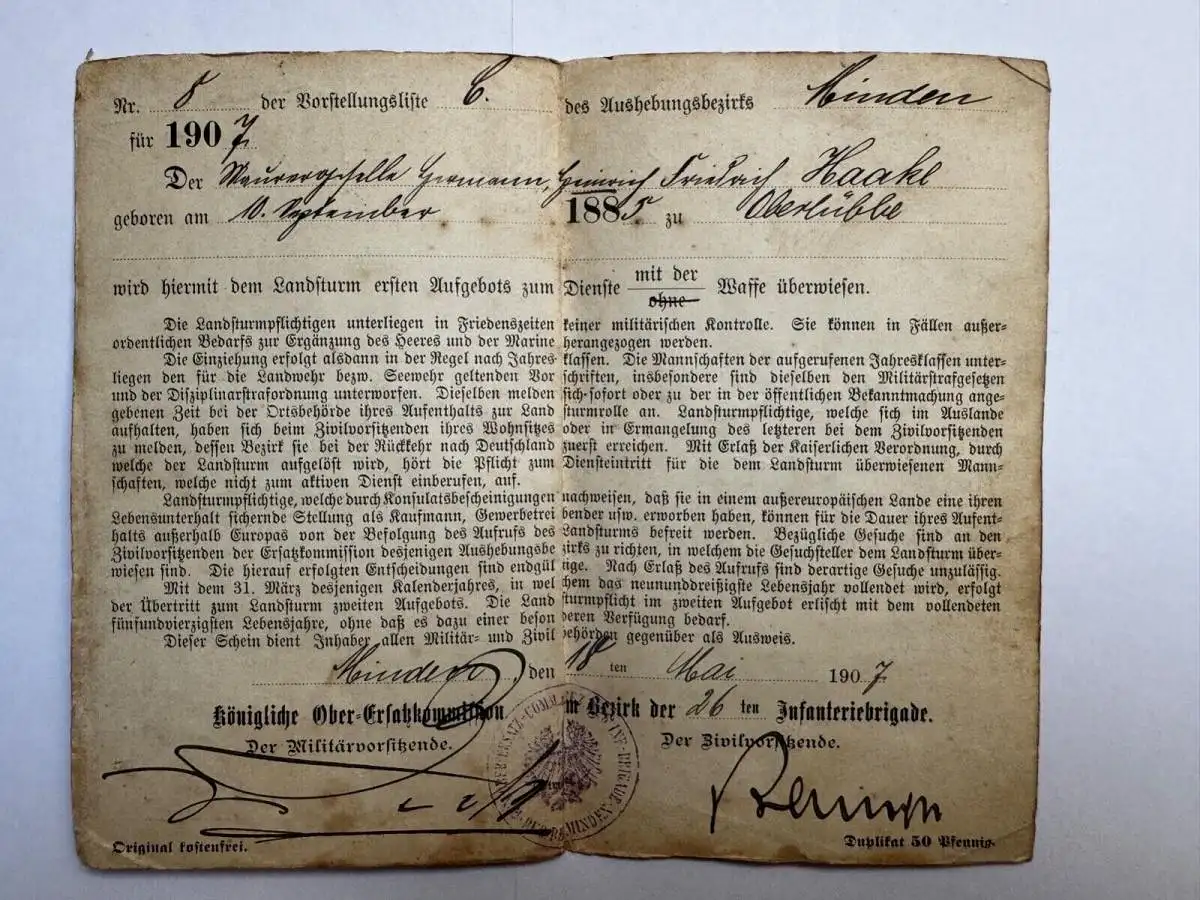 Nr. 8 der Vorstellungsliste C. des Aushebungsbezirks Minden
für 1907
Der Maurergeselle Hermann, Heinrich Friedrich Haake
geboren am 10. September 1885 zu Oberlübbe
wird hiermit dem Landsturm ersten Aufgebots zum Dienste mit der Waffe überwiesen.
ohne
Die Landsturmpflichtigen unterliegen in Friedenszeiten keiner militärischen Kontrolle. Sie können in Fällen außer-
ordentlichen Bedarfs zur Ergänzung des Heeres und der Marine herangezogen werden.
Die Einziehung erfolgt alsdann in der Regel nach Jahres klassen. Die Mannschaften der aufgerufenen Jahresklassen unter-
liegen den für die Landwehr bezw. Seewehr geltenden Vor schriften, insbesondere sind dieselben den Militärstrafgesetzen
und der Disziplinarstrafordnung unterworfen. Dieselben melden sich sofort oder zu der in der öffentlichen Bekanntmachung ange-
gebenen Zeit bei der Ortsbehörde ihres Aufenthalts zur Land sturmrolle an. Landsturmpflichtige, welche sich im Auslande
aufhalten, haben sich beim Zivilvorsitzenden ihres Wohnsitzes oder in Ermangelung des letzteren bei dem Zivilvorsitzenden
zu melden, dessen Bezirk sie bei der Rückkehr nach Deutschland zuerst erreichen. Mit Erlaß der Kaiserlichen Verordnung, durch
welche der Landsturm aufgelöst wird, hört die Pflicht zum Diensteintritt für die dem Landsturm überwiesenen Mann-
schaften, welche nicht zum aktiven Dienst einberufen, auf.
Landsturmpflichtige, welche durch Konsulatsbescheinigungen nachweisen, daß sie in einem außereuropäischen Lande eine ihren
Lebensunterhalt sichernde Stellung als Kaufmann, Gewerbetrei bender usw. erworben haben, können für die Dauer ihres Aufent-
halts außerhalb Europas von der Befolgung des Aufrufs des Landsturms befreit werden. Bezügliche Gesuche sind an den
Zivilvorsitzenden der Ersatzkommission desjenigen Aushebungsbe zirks zu richten, in welchem die Gesuchsteller dem Landsturm über-
wiesen sind. Die hierauf erfolgten Entscheidungen sind endgül tige. Nach Erlaß des Aufrufs sind derartige Gesuche unzulässig.
Mit dem 31. März desjenigen Kalenderjahres, in wel chem das neununddreißigste Lebensjahr vollendet wird, erfolgt
der Übertritt zum Landsturm zweiten Aufgebots. Die Land sturmpflicht im zweiten Aufgebot erlischt mit dem vollendeten
fünfundvierzigsten Lebensjahre, ohne daß es dazu einer beson deren Verfügung bedarf.
Dieser Schein dient Inhaber allen Militär- und Zivil behörden gegenüber als Ausweis.
Minden, den 18 ten Mai 1907
Königliche Ober-Ersatzkommission im Bezirk der 26 ten Infanteriebrigade.
Der Militärvorsitzende. Der Zivilvorsitzende.
Original kostenfrei. Duplikat 50 Pfennig.